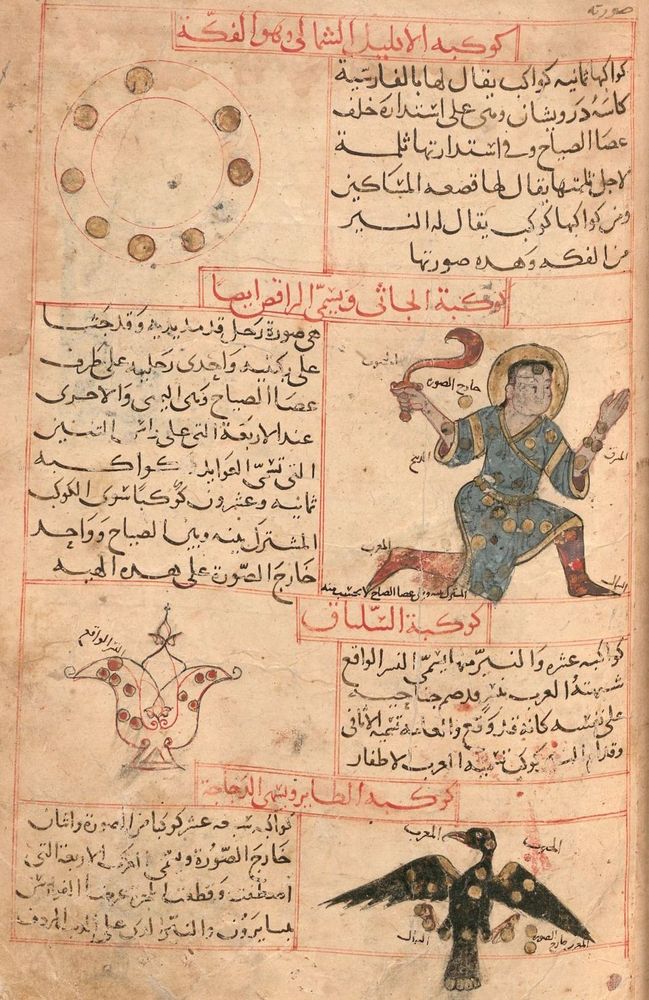 صورته
كوكبة الاكليل الشمالي وهو الفكة
كواكبها ثمانية كواكب يقال لها بالفارسية
كاسه درويشان وهي على استدارة خلف
عصا الصياح وفي استدارتها ثلمة
لاجل ثلمتها يقال لها قصعه المساكين
ومن كواكبها كوكب يقال له النير
من الفكه وهذه صورتها
كوكبة الجاثي ويسمى الراقص ايضا
هي صورة رجل قد مد يديه وقد جثا
على ركبتيه واحدى رجليه على طرف
عصا الصياح وهي اليمنى والاخرى
عند الاربعة التي على راس التنين
التي تسمى العوايد كواكبه
ثمانيه وعشرون كوكبا سوى الكوكب
المشترك بينه وبين الصياح وواحد
خارج الصورة على هذه الهيه
الجنوب
خارج الصوره
المشرق
المغرب
الشمال
كوكبة السلياق
كواكبه عشره والنير منها يسمى النسر الواقع
شبهته العرب بنسر قد ضم جناحيه
على نفسه كانه قد وقع والعامة تسميه الاثافي
وقدام النسر كوكب تسميه العرب الاظفار
النسر الواقع
كوكبة الطاير ويسمى الدجاجة
كواكبه سبعه عشر كوكبا من الصورة واثنان
خارج الصورة ويسمى العرب الاربعة التي
اصطفت وقطعت المجرة عرضا الفوارس
المغرب
الجنوب
الشمال
خارج الصوره